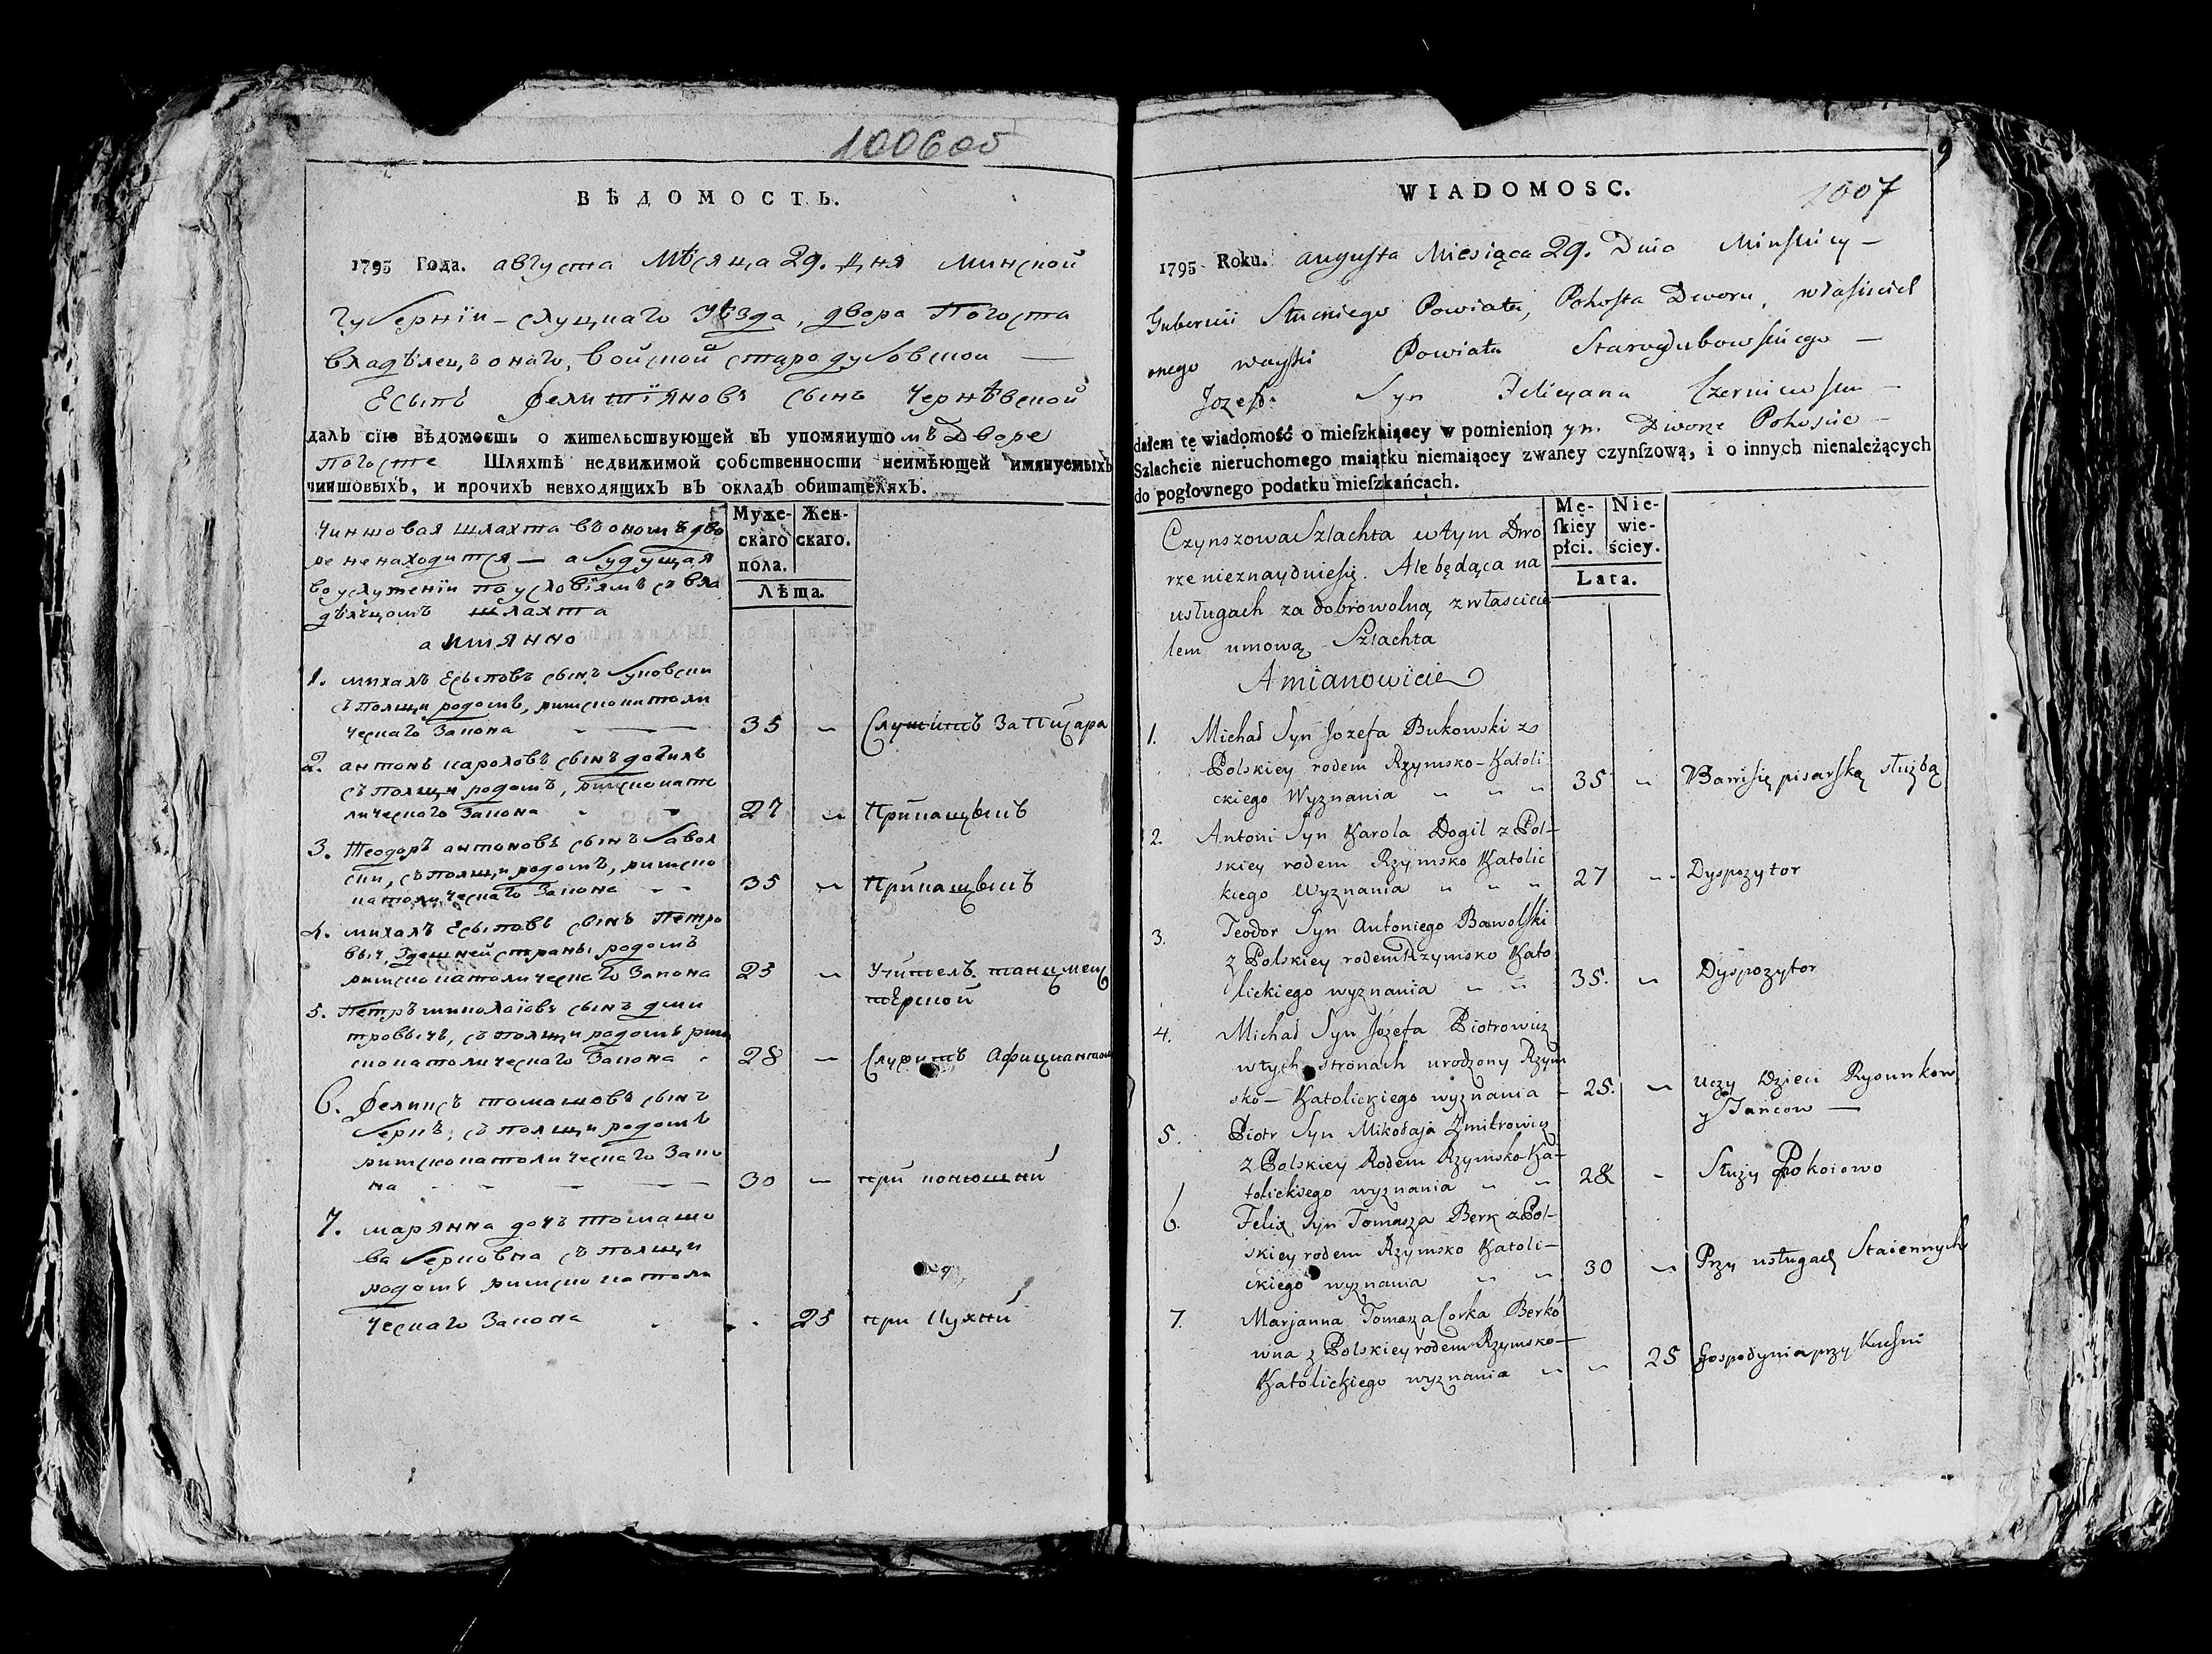 1006 об
ВѢДОМОСТЬ.
1795 Года. августа Мѣсяца 29. Дня Минской
Губернїи – слуцкаго уѣзда, двора Погоста
владѣлецъ онаго, войской стародубовской —
Есыпъ Фелиціяновъ сынъ Чернѣвской
далъ сїю вѣдомость о жительствующей въ упомянутомъ Дворе
Погосте Шляхтѣ недвижимой собственности неимѣющей имянуемыхъ
чиншовыхъ, и прочихъ невходящихъ въ окладъ обитателяхъ.
Муже- Жен-
скаго скаго.
пола.
Лѣта.
Чиншовая шляхта въ ономъ дво
ре ненаходится — а будущая
въ услуженіи по условїямъ съ вла
дѣлцомъ шляхта
а имянно
1. михалъ Есыповъ сынъ буковски
съ полщи родомъ, римскокатоли
ческаго Закона — 35 – Служитъ За Писара
2. антонъ кароловъ сынъ догиль
съ полщи родомъ, римскокато
лическаго Закона 27 – Прикащикъ
3. Теодоръ антоновъ сынъ бавол
ски, съ полщи родомъ, римско
католическаго Закона - - 35 – Прикащикъ
4. михалъ Есыповъ сынъ Петро
вич, Здешней страны родомъ
римскокатолическаго Закона 25 – Учитель танцмей
стерской
5. Петръ миколаїовъ сынъ дми
тровичъ, съ полщи родомъ рим
скокатолическаго Закона 28 – Служитъ Афициантом
6. Феликсъ томашовъ сынъ
беркъ, съ полщи родомъ
римскокатолическаго Зако
на - - - 30 – при конюшни
7. марянна дочъ томашо
ва берковна съ полщи
родомъ римскокатоли
ческаго Закона - - 25 при Кухни
9
WIADOMOSC.
1007
1795 Roku. augusta Miesiąca 29. Dnia Minskiey –
Gubernii Słuckiego Powiatu, Pohosta Dworu, właściciel
onego woyski Powiatu Starodubowskiego –
Jozef Syn Felicyana Czerniewski –
dałem tę wiadomość o mieſzkaiącey w pomienionym Dworze Pohoście –
Szlachcie nieruchomego maiątku niemaiącey zwaney czynſzową, i o innych nienależących
do pogłownego podatku mieſzkańcach.
Mę- Nie-
ſkiey wie-
płci. ściey.
Lata.
Czynszowa Szlachta w tym Dwo
rze nieznayduie się. Ale będąca na
usługach za dobrowolną z właścicie
lem umową Szlachta
Amianowicie
1. Michał Syn Józefa Bukowski z
Polskiey rodem Rzymsko-Katoli
ckiego Wyznania „ „ „ 35 – Bawi się pisarską służbą
2. Antoni Syn Karola Dogil z Pol-
skiey rodem Rzymsko Katolic
kiego Wyznania „ „ „ 27 -- Dyspozytor
3. Teodor Syn Antoniego Bawolski
z Polskiey rodem Rzymsko Kato
lickiego wyznania „ „ 35. – Dyspozytor
4. Michał Syn Józefa Piotrowicz
w tych stronach urodzony Rzym
sko – Katolickiego wyznania - 25. – Uczy Dzieci Rysunkow
y Tańcow —
5. Piotr Syn Mikołaja Zmitrowicz
z Polskiey Rodem Rzymsko-Ka-
tolickiego wyznania „ „ 28 - Służy Pokoiowo
6. Felix Syn Tomasza Berk z Pol-
skiey rodem Rzymsko Katoli-
ckiego wyznania „ „ 30 – Przy usługach Staiennych
7. Marjanna Tomasza Corka Berko
wna z Polskiey rodem Rzymsko-
Katolickiego wyznania „ – 25 Gospodynia przy Kuchni